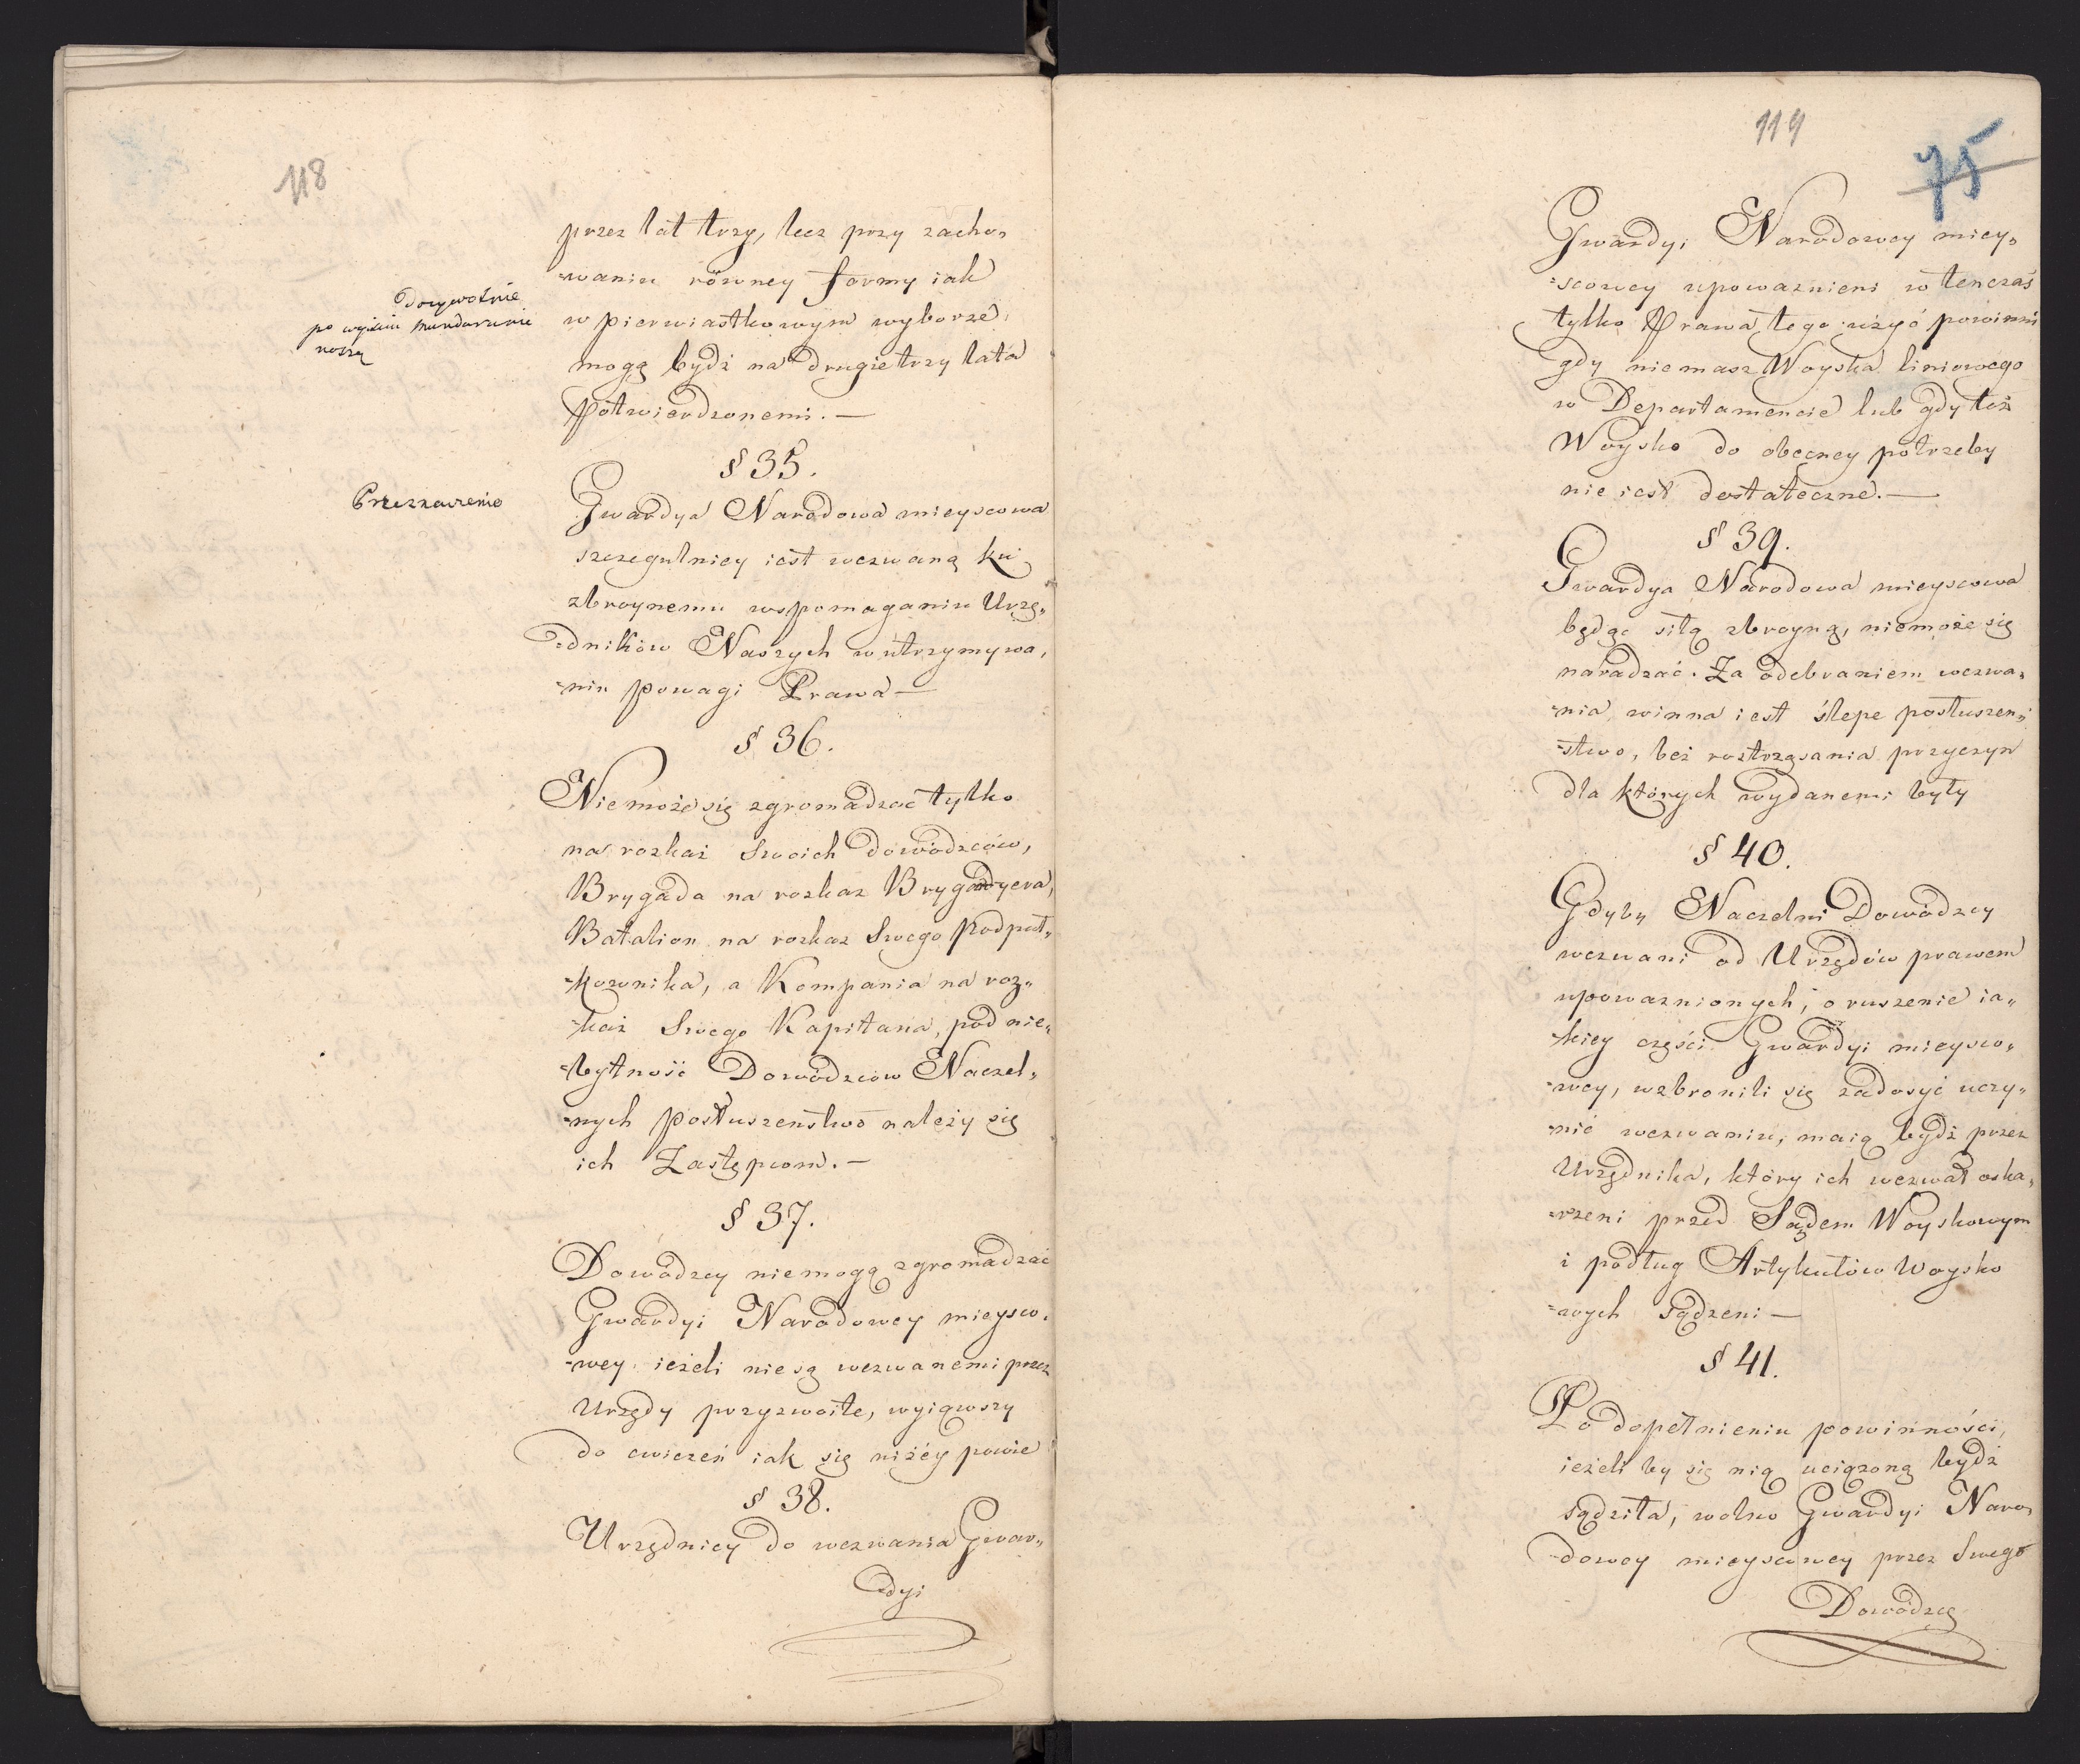 118
przez lat trzy, lecz przy zacho„
„waniu równey formy iak
w pierwiastkowym wyborze,
mogą bydź na drugie trzy lata
potwierdzonemi. —
po wyściu mundur
noszą
§ 35.
Przeznaczenie
Gwardya Narodowa mieyscowa
szczegulniey iest wezwaną ku
zbroynemu wspomaganiu Urzę„
„dników Naszych w utrzymywa„
„niu powagi Prawa —
§ 36.
Niemoże się zgromadzać tylko
na rozkaz Swoich Dowódzców,
Brygada na rozkaz Brygadyera,
Batalion na rozkaz Swego Podpuł„
„kownika, a Kompania na roz„
„kaz Swego Kapitana, pod nie„
„bytność Dowódzców Naczel„
„nych posłuszeństwo należy się
ich Zastępcom. —
§ 37.
Dowódzcy niemogą zgromadzać
Gwardyi Narodowey mieysco„
„wey, ieżeli nie są wezwanemi przez
Urzędy przyzwoite, wyiąwszy
do cwiczeń iak się niżéy powie
§ 38.
Urzędnicy do wezwania Gwar„
dyi
119
75
Gwardyi Narodowey miey„
„scowey upoważnieni w tenczas
tylko Prawa tego użyć powinni
gdy niemasz Woyska liniowego
w Departamencie lub gdy też
Woysko do obecney potrzeby
nie iest dostateczne. —
§ 39.
Gwardya Narodowa mieyscowa
będąc siłą zbroyną, niemoże się
naradzać. Za odebraniem wezwa„
„nia winna iest ślepe posłuszeń„
„stwo, bez roztrząsania przyczyn
dla których wydanemi były
§ 40.
Gdyby Naczelni Dowódzcy
wezwani od Urzędów prawem
upoważnionych, o ruszenie ia„
„kiey części Gwardyi mieysco„
„wey, wzbronili się zadosyć uczy„
„nić wezwaniu, maią bydź przez
Urzędnika, który ich wezwał oska„
„rzeni przed Sądem Woyskowym
i podług Artykułów Woysko
„wych sądzeni —
§ 41.
Po dopełnieniu powinności,
ieżeli by się nią uciążoną bydź
sądziła, wolno Gwardyi Naro„
„dowey mieyscowey przez Swego
Dowódzcę